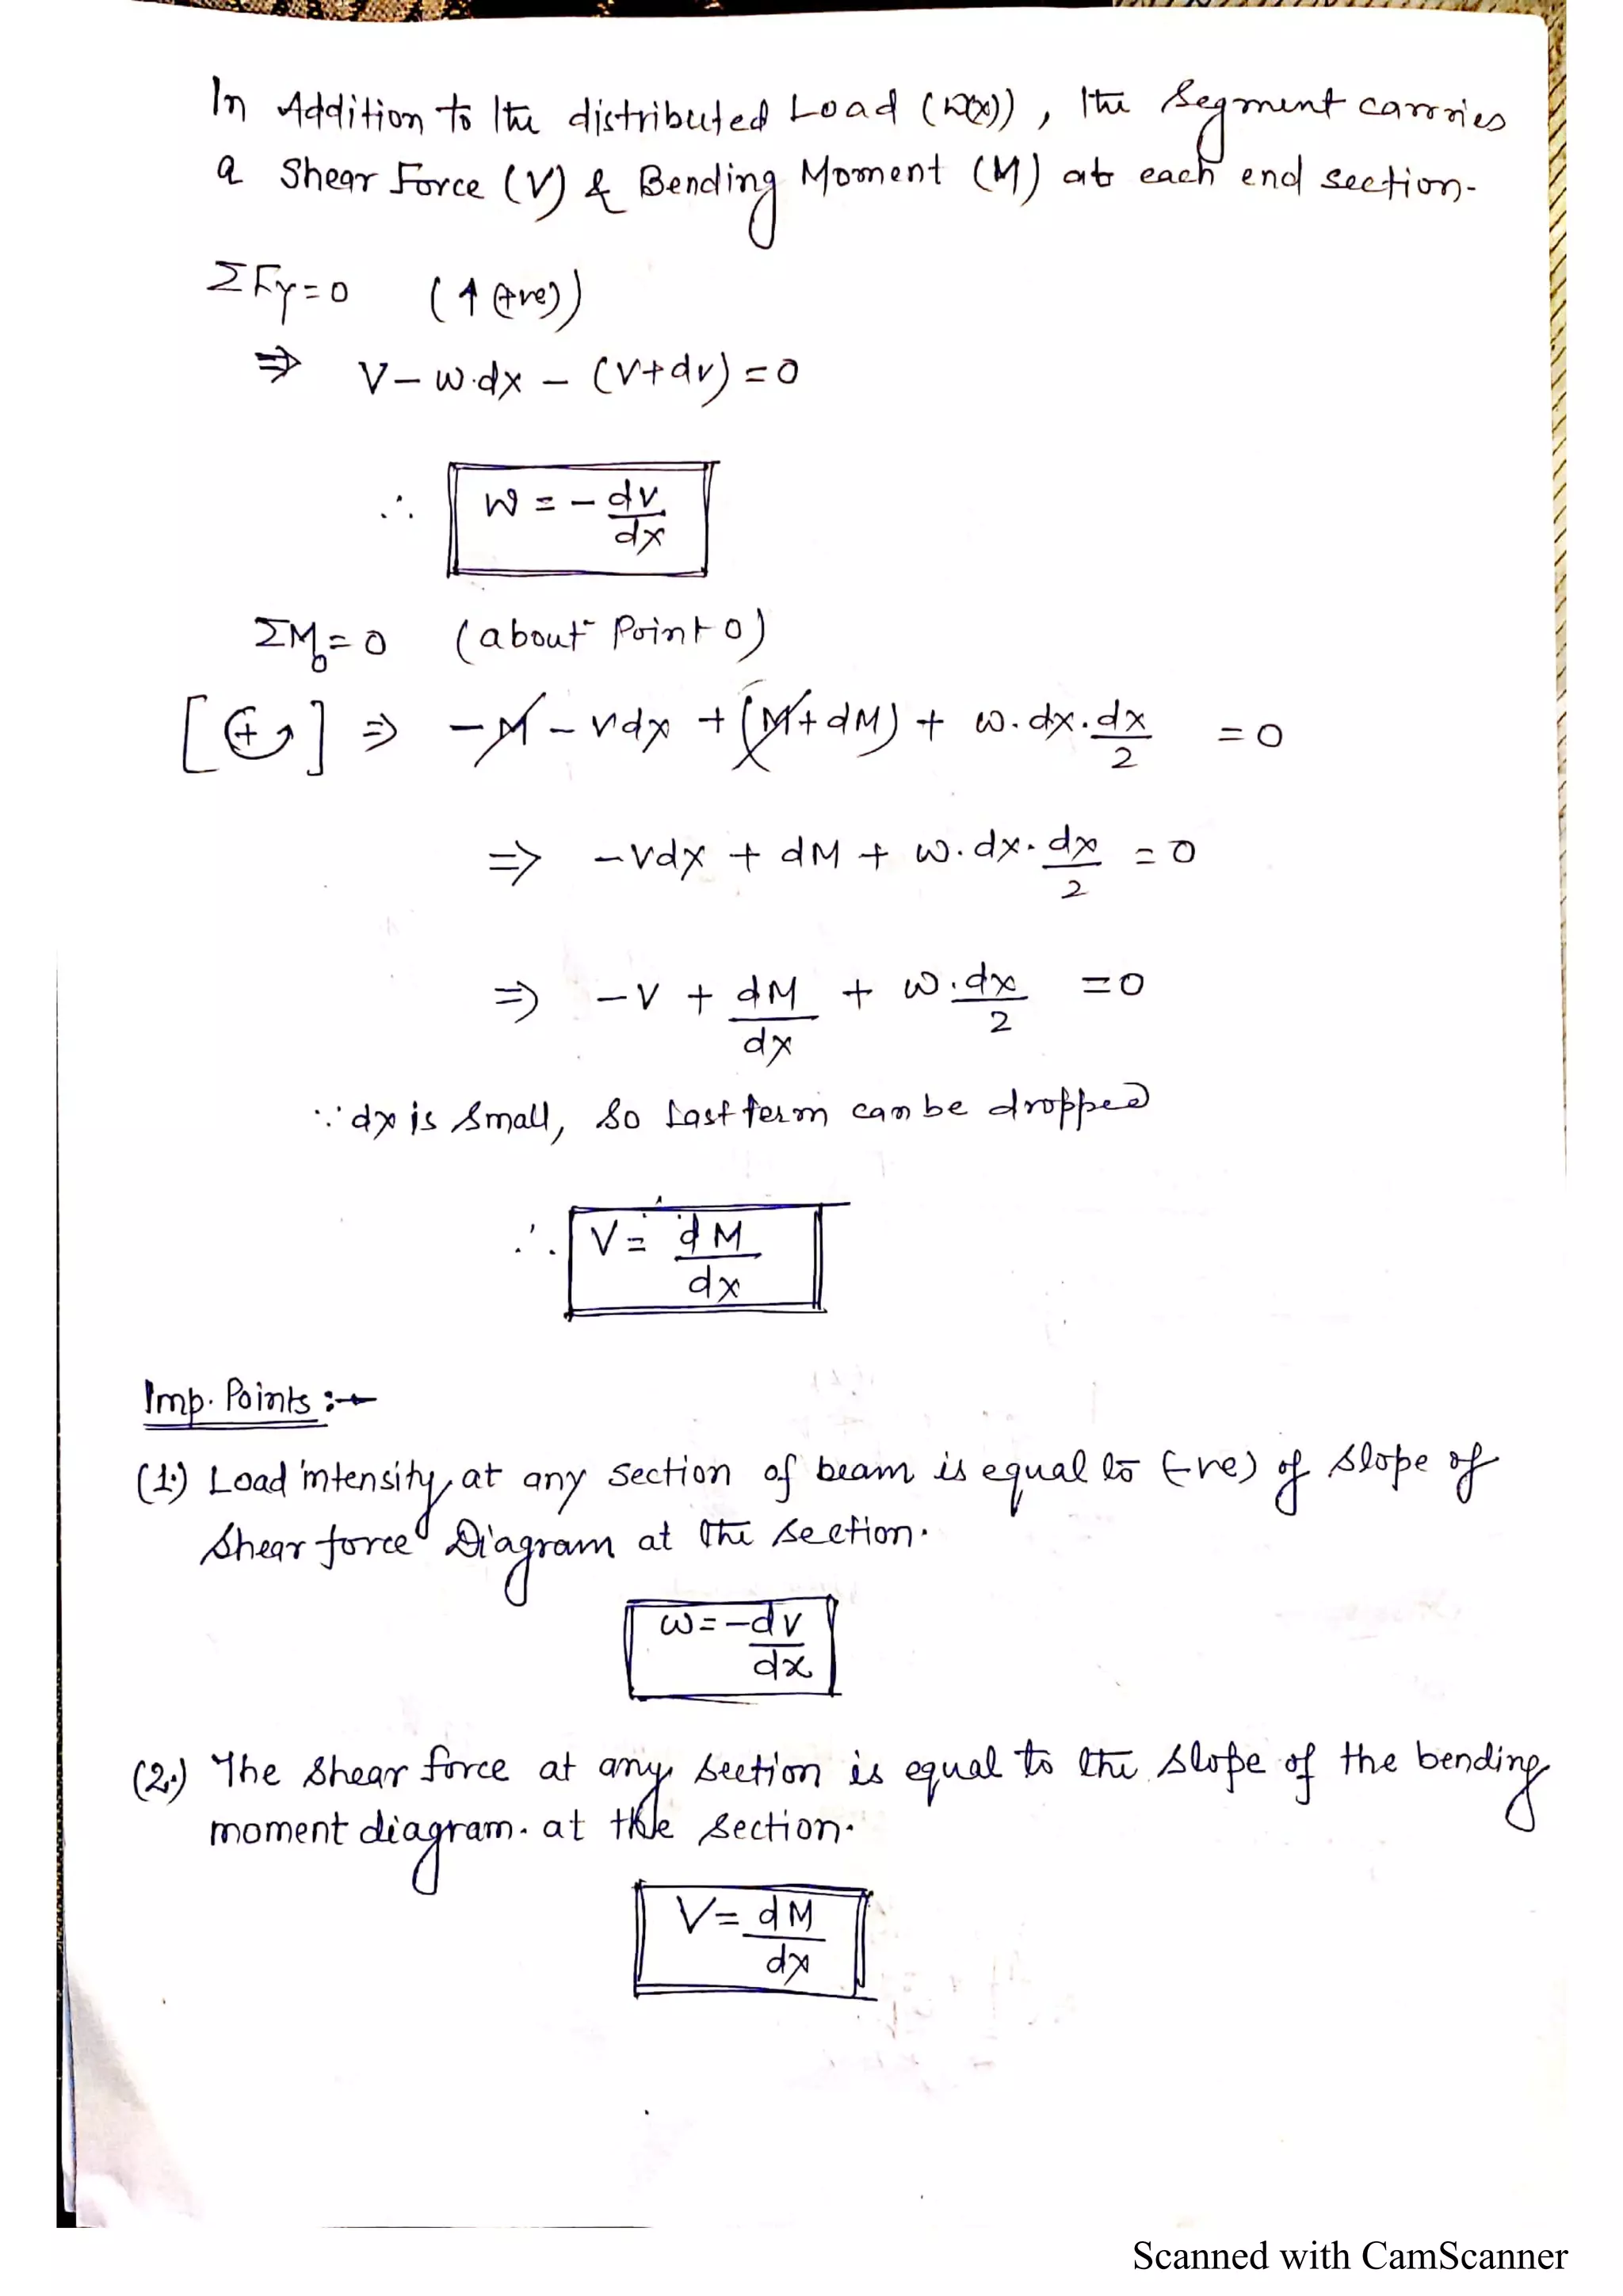 In Addition to the distributed Load (w(x)), the segment carries
a Shear Force (V) & Bending Moment (M) at each end section.
ΣFy=0 (↑ (+ve))
⇒ V – w.dx – (V+dv) = 0
∴ W = – dv/dx
ΣM₀ = 0 (about Point O)
[(+↺)] ⇒ –M – Vdx + (M + dM) + w.dx.dx/2 = 0
⇒ –Vdx + dM + w.dx.dx/2 = 0
⇒ –V + dM/dx + w.dx/2 = 0
∵ dx is small, so Last term can be dropped
∴ V = dM/dx
Imp. Points :–
(1.) Load intensity at any section of beam is equal to (-ve) of slope of
shear force Diagram at the section.
w = – dv/dx
(2.) The shear force at any section is equal to the slope of the bending
moment diagram. at the section.
V = dM/dx
Scanned with CamScanner